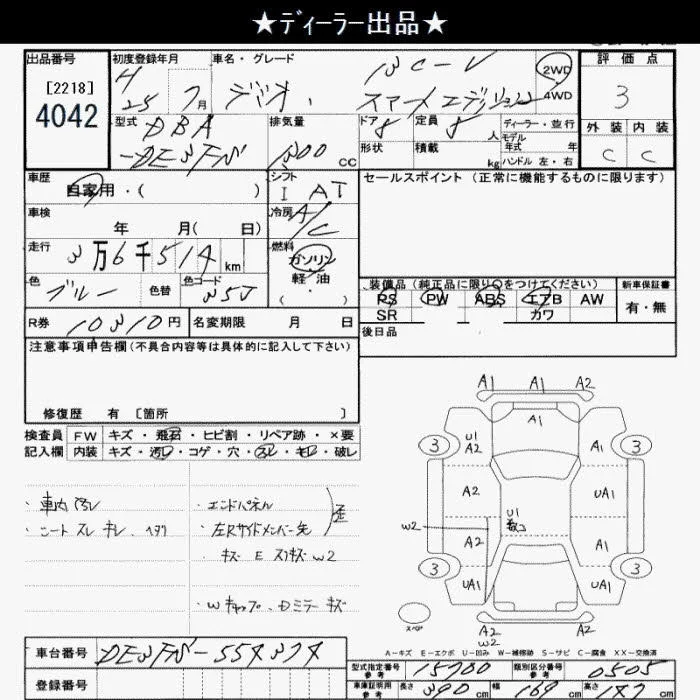 ★ディーラー出品★
出品番号 初度登録年月 車名・グレード 評価点
[2218]
4042
H 25 7月 デミオ 13C-V 2WD 3
スマートエディション 4WD
型式 DBA 排気量 ドア 定員 ディーラー・並行 外装 内装
-DE3FS 1300 CC 8 人 モデル年式 年 C C
形状 積載 kg ハンドル 左・右
車歴 シフト セールスポイント (正常に機能するものに限ります)
自家用・( ) I AT
車検 冷房 A/C
年 月( 日)
走行 燃料
3万6千514 km ガソリン
軽油
( ・ )
色 色替 色コード 装備品(純正品に限り○をつけてください) 新車保証書
ブルー 35J PS PW ABS エアB AW 有・無
SR カワ
R券 10310円 名変期限 月 日 後日品
注意事項申告欄(不具合内容等は具体的に記入して下さい)
修復歴 有 〔箇所 〕
検査員 FW キズ・飛石・ヒビ割・リペア跡・×要
記入欄 内装 キズ・汚レ・コゲ・穴・スレ・キレ・破レ
・車内汚レ ・エンドパネル
・シート スレ キレ・ヘタリ ・左Rサイドメンバー先 歪
キズ E スリキズ W2
・Wキャップ・Dミラー キズ
A1 A1 A2
A1
3 U1 A2 A1 3
A2 U1 UA1
W2 A2 A1
3 UA1 UA1 3
スペア A2 A2
W2
A-キズ E-エクボ U-凹み W-補修跡 S-サビ C-腐食 XX-交換済
車台番号 DE3FS-554374
登録番号
型式指定番号 参考 15700 類別区分番号 参考 0505
車庫証明用 参考 長さ 390 cm 幅 169 cm 高さ 147 cm